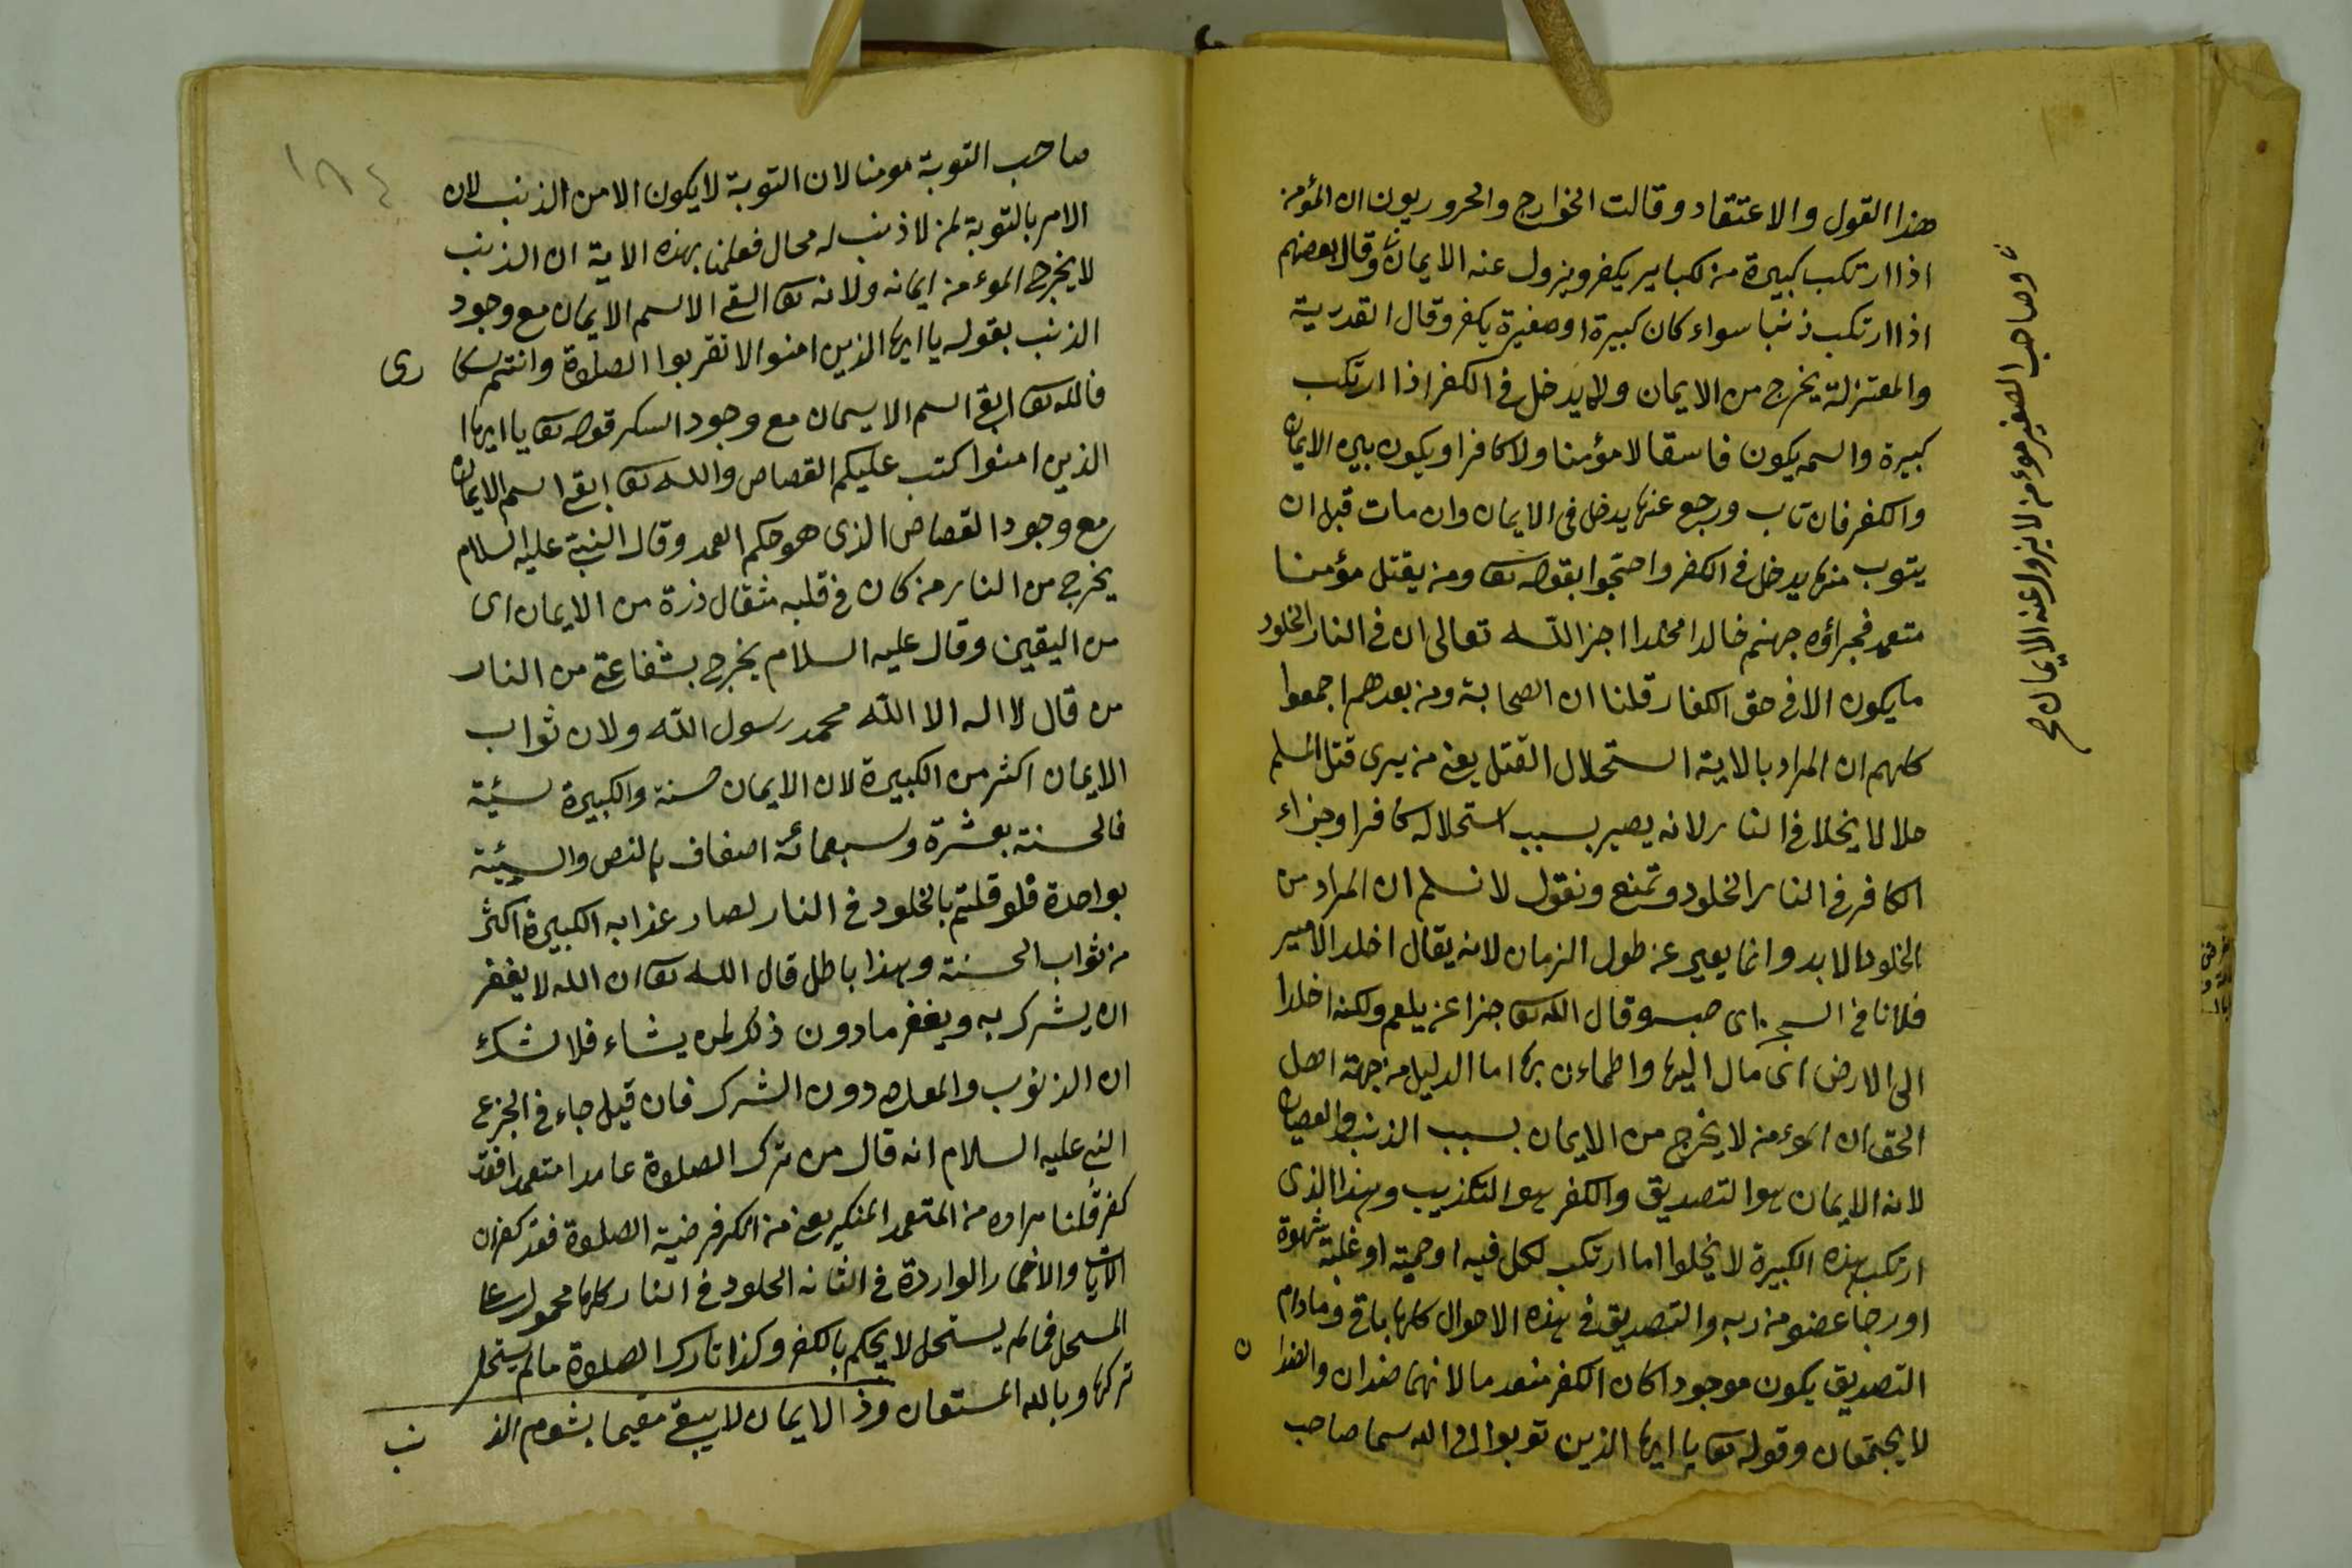 هذا القول والاعتقاد وقالت الخوارج والحروريون ان المؤمن
اذا ارتكب كبيرة من لكبايـر يكفر ويزول عنه الايمان وقال بعضهم
اذا ارتكب ذنبا سواء كان كبيرة او صغيرة يكفر وقال القدرية
والمعتزلة يخرج من الايمان ولا يدخل فى الكفر اذا ارتكب
كبيرة واسمه يكون فاسقا لا مؤمنا ولا كافرا ويكون بين الايمان
والكفر فان تاب ورجع عنها يدخل فى الايمان وان مات قبل ان
يتوب منها يدخل فى الكفر واحتجوا بقوله تعا ومن يقتل مؤمنا
متعمد فجزاؤه جهنم خالدا مخلدا اجز الله تعالى ان فى النار الخلود
ما يكون الا فى حق الكفار قلنا ان الصحابة ومن بعدهم اجمعوا
كلهم ان المراد بالاية استحلال القتل يعنى من يرى قتل المسلم
حلالا يخلد فى النار لانه يصير بسبب استحلاله كافرا وجزاء
الكافر فى النار الخلود وتمنع ونقول لا نسلم ان المراد من
الخلود الابد وانما يعبر عن طول الزمان لانه يقال اخلد الامير
فلانا فى السجن اى حبسه وقال الله تعا جزا عن بلعم ولكنه اخلدا
الى الارض اى مال اليها واطمأن بها اما الدليل من جهة اهل
الحق ان المؤمن لا يخرج من الايمان بسبب الذنب والعصيان
لانه الايمان هو التصديق والكفر هو التكذيب وهذا الذى
ارتكب هذه الكبيرة لا يخلوا اما ارتكب لكل فيه او حمية او غلبة شهوة
او رجا عضو من ربه والتصديق فى هذه الاحوال كلها باقى وما دام
التصديق يكون موجودا كان الكفر منعدما لانهما ضدان والضدا ن
لا يجتمعان وقوله تعا يا ايها الذين توبوا الى الله سما صاحب
وصاحب الصغير مؤمن لا يزول عنه الايمان صح
١٨٤
صاحب التوبة مومنا لان التوبة لا يكون الا من الذنب لان
الامر بالتوبة لمن لا ذنب له محال فعلمنا بهذه الاية ان الذنب
لا يخرج المؤمن ايمانه ولانه تعا ابقى الاسم الايمان مع وجود
الذنب بقوله يا ايها الذين امنوا لا تقربوا الصلوة وانتم سكا رى
فالله تعا ابقى اسم الايمان مع وجود السكر قوله تعا يا ايها
الذين امنوا كتب عليكم القصاص والله تعا ابقى اسم الايمان
مع وجود القصاص الذى هو حكم العمد وقال النبى عليه السلام
يخرج من النار من كان فى قلبه مثقال ذرة من الايمان اى
من اليقين وقال عليه السلام يخرج بشفاعتى من النار
من قال لا اله الا الله محمد رسول الله ولان ثواب
الايمان اكثر من الكبيرة لان الايمان حسنة والكبيرة سيئة
فالحسنة بعشرة وسبعمائة اضعاف بالنص والسيئة
بواحدة فلو قلتم بالخلود فى النار لصار عذابه الكبيرة اكثر
من ثواب الحسنة وهذا باطل قال الله تعا ان الله لا يغفر
ان يشرك به ويغفر ما دون ذلك لمن يشاء فلا شك
ان الذنوب والمعاصى دون الشرك فان قيل جاء فى الجز عن
النبى عليه السلام انه قال من ترك الصلوة عامدا متعمدا فقد
كفر قلنا مراده من المتعمد المنكير يعنى من انكر فرضية الصلوة فقد كفر ان
الايات والاخبار الواردة فى الخلود فى النار كلها محمول على
المستحل فما لم يستحل لا يحكم بالكفر وكذا تارك الصلوة ما لم يستحل
تركها وبالله المستعان وذ الايمان لا يبقى مقيما بشوم الذ نب